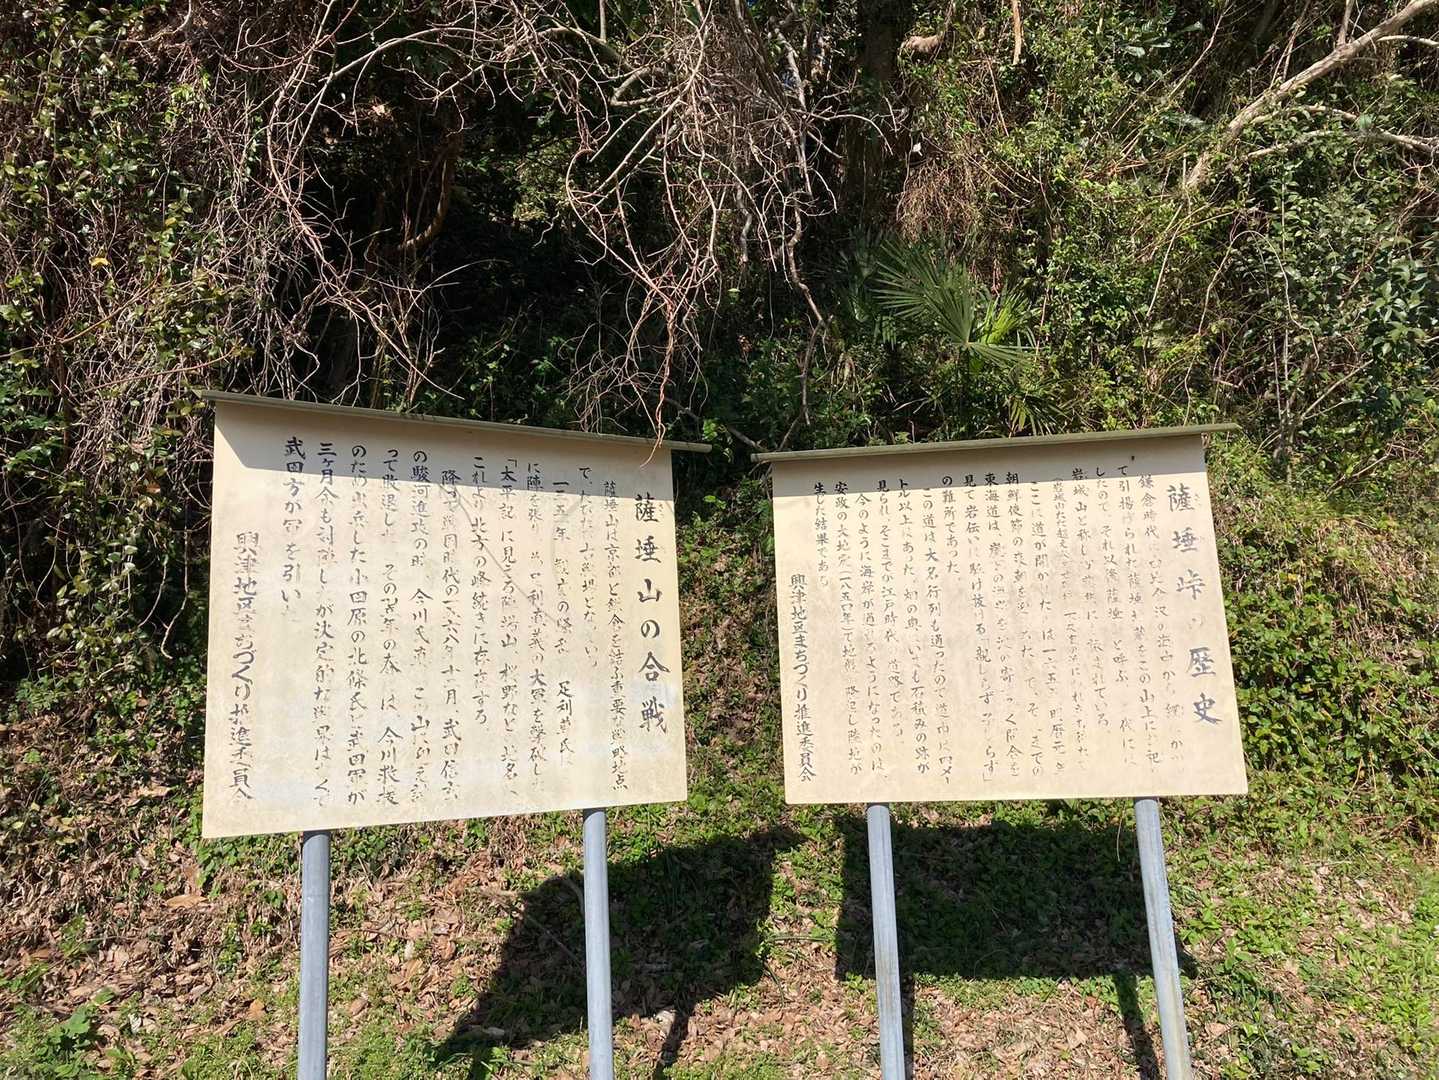 薩埵峠の歴史
鎌倉時代に由比倉沢の海中から網にかかっ
て引揚げられた薩埵地蔵をこの山上にお祀
りしたので、それ以後薩埵山と呼ぶ。上代には
岩城山と称し万葉集にも詠まれている。
ここに道が開かれたのは一六五五年明暦元年
朝鮮使節の来朝を迎えた時で、それまでの
東海道は、崖下の海岸を波の寄せ引く間合を
見て岩伝いに駆け抜ける「親しらず子しらず」
の難所であった。
この道は大名行列も通ったので道幅は四メー
トル以上はあった。畑の奥にいまも石積みの跡が
見られ、そこまでが江戸時代の道路である。
今のように海岸が通れるようになったのは、
安政の大地震（一八五四年）で地形が隆起し陸地が
生じた結果である。
興津地区まちづくり推進委員会
薩埵山の合戦
薩埵山は京都と鎌倉を結ぶ重要な戦略地点
で、たびたび古戦場となっている。
一三五一年 観応の騒乱 足利尊氏は
に陣を張り、弟直義の大軍を撃破した
「太平記」に見える陣場山、桜野など
これより北方の峰続きに存在する
降って戦国時代の一五六八年十二月、武田信玄
の駿河進攻の時、今川氏真
って敗退し、その翌年の春には、今川救援
のため出兵した小田原の北条氏と武田軍が
三ヶ月余も対陣したが決定的な戦果はなくて
武田方が軍を引いた
興津地区まちづくり推進委員会